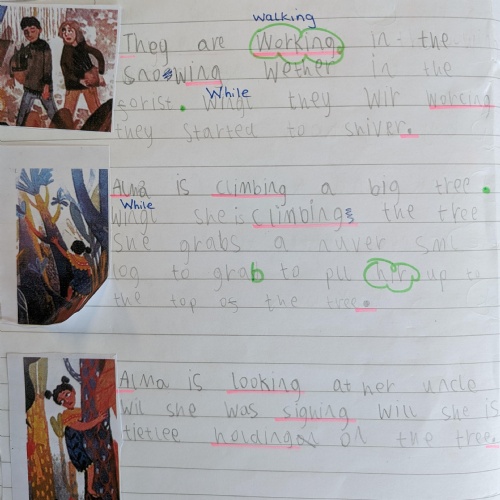 walking
They are Working. in the
snowing wether in the
forist. While they wir worcing
they started to shiver.
Alma is climbing a big tree.
While
wingt she is climbings the tree
She grabs a nuver sml
log to grab to pll her up to
the top of the tree.
Alma is looking at her uncle
wil she was signing will she is
tietlee holding on the tree.